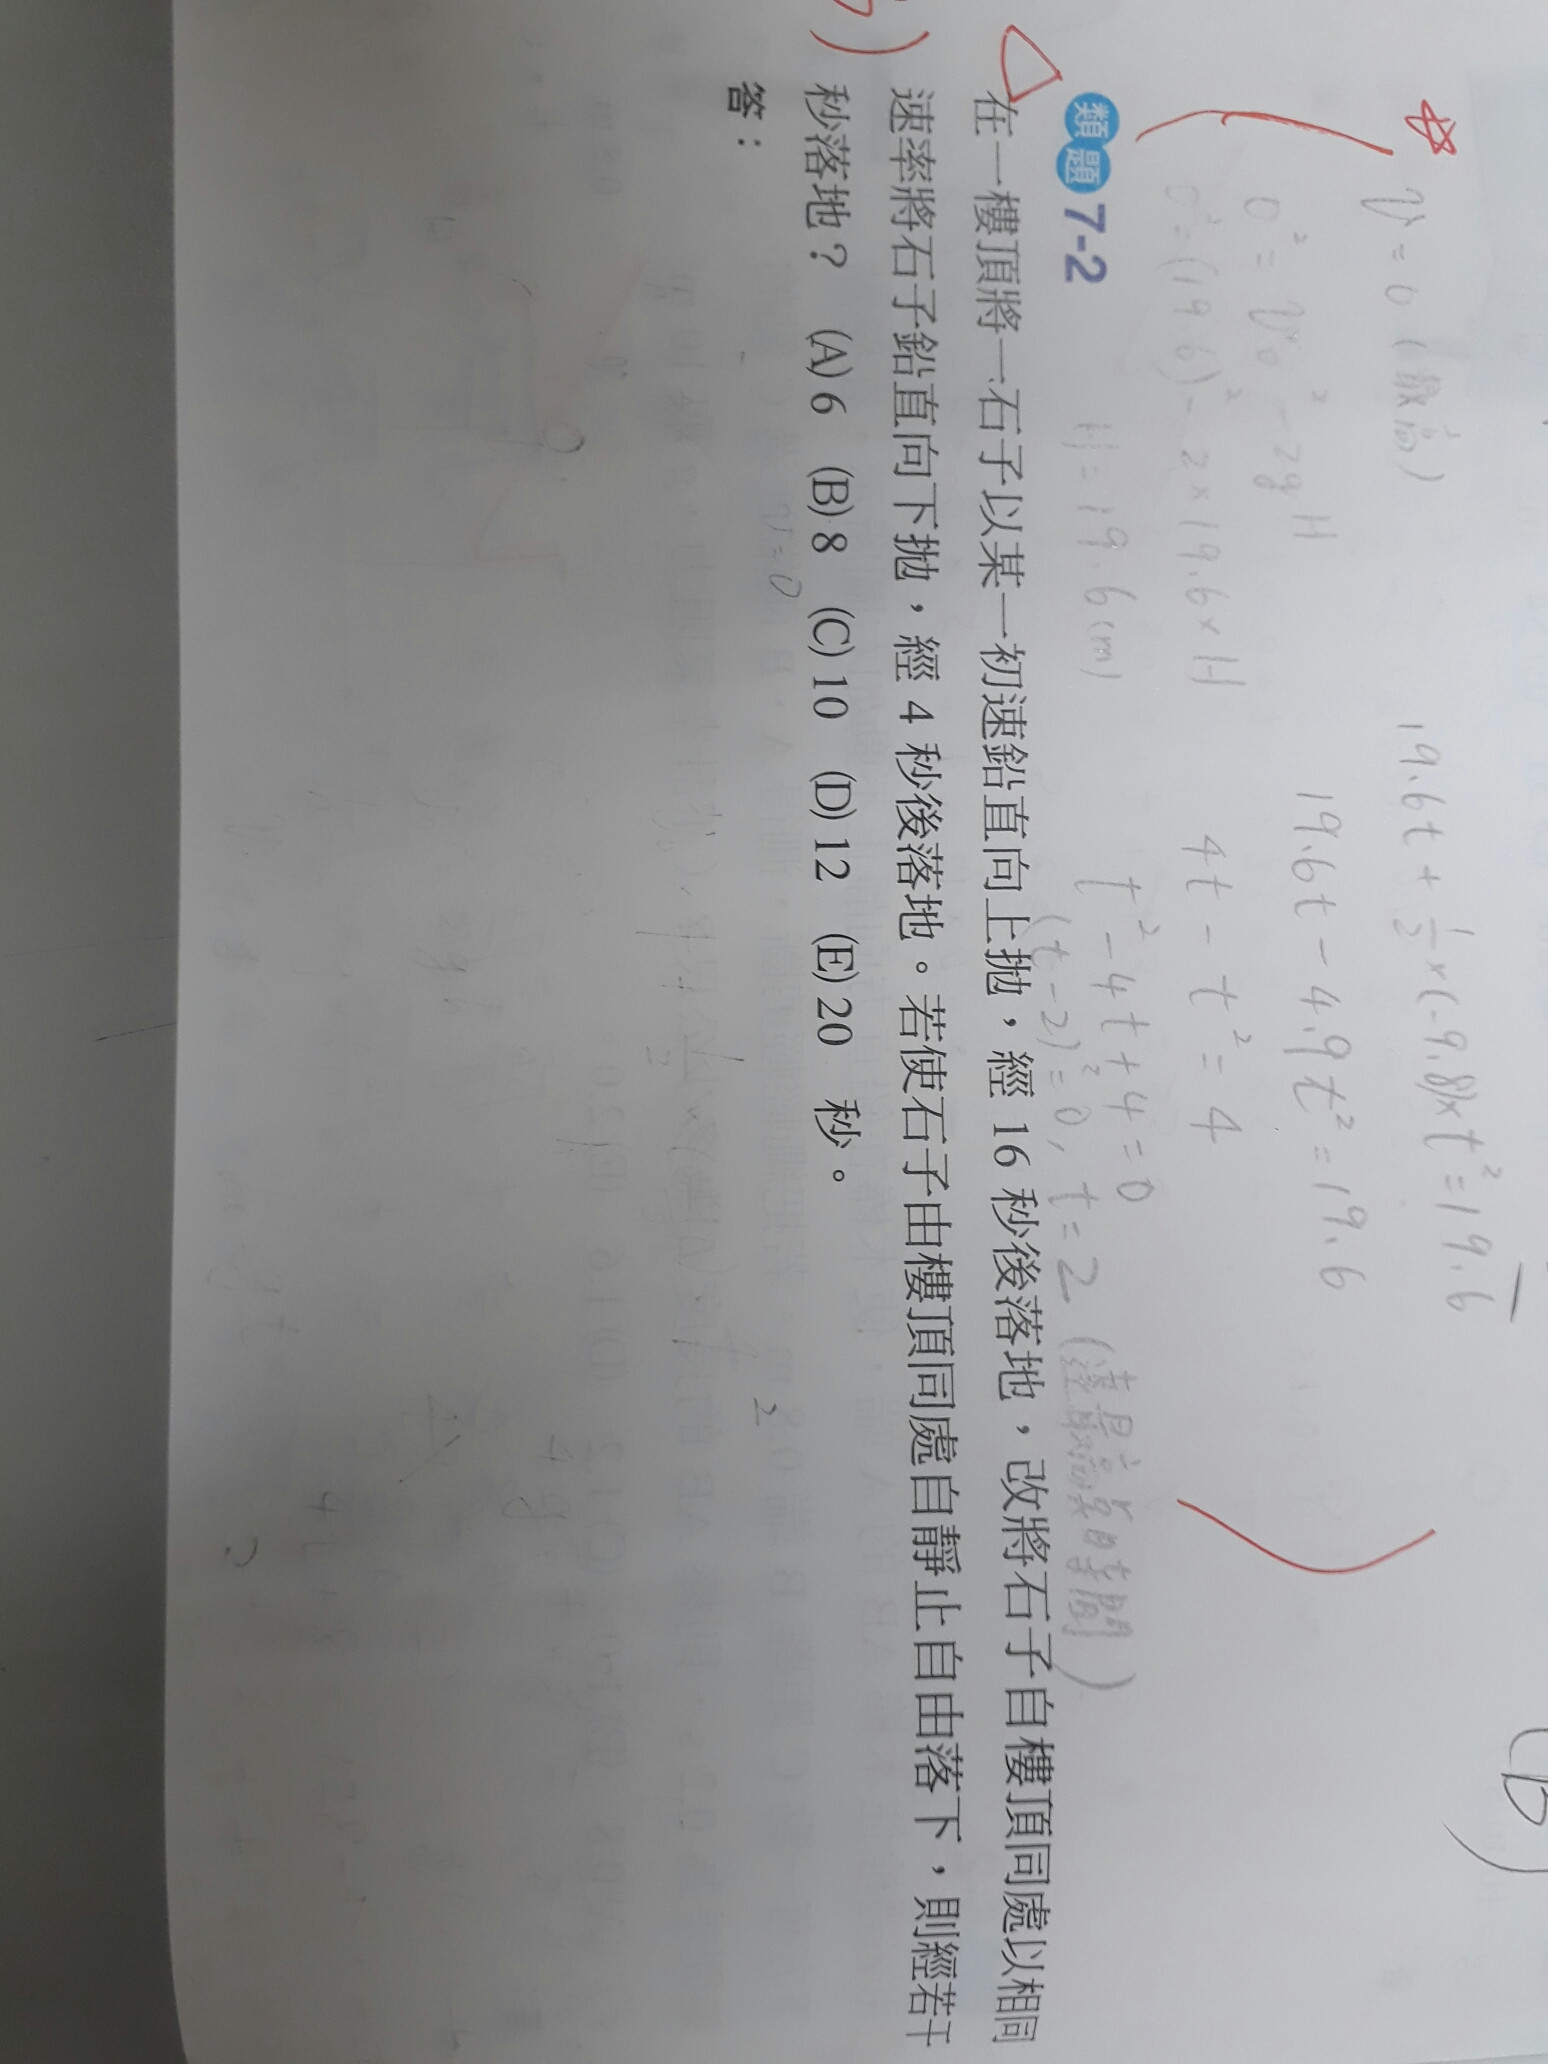 V = 0 (最高)
0² = V₀² - 2gH
0² = (19.6)² - 2×19.6×H
H = 19.6 (m)
19.6t + ½×(-9.8)×t² = 19.6
19.6t - 4.9t² = 19.6
4t - t² = 4
t² - 4t + 4 = 0
(t-2)² = 0, t = 2 (達最高點時間)
類題 7-2
在一樓頂將一石子以某一初速鉛直向上拋，經 16 秒後落地，改將石子自樓頂同處以相同
速率將石子鉛直向下拋，經 4 秒後落地。若使石子由樓頂同處自靜止自由落下，則經若干
秒落地？ (A) 6 (B) 8 (C) 10 (D) 12 (E) 20 秒。
答：